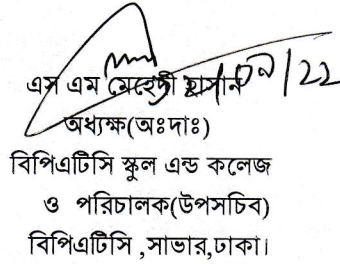 এস এম মেহেদী হাসান
অধ্যক্ষ(অঃদাঃ)
বিপিএটিসি স্কুল এন্ড কলেজ
ও পরিচালক(উপসচিব)
বিপিএটিসি ,সাভার,ঢাকা।